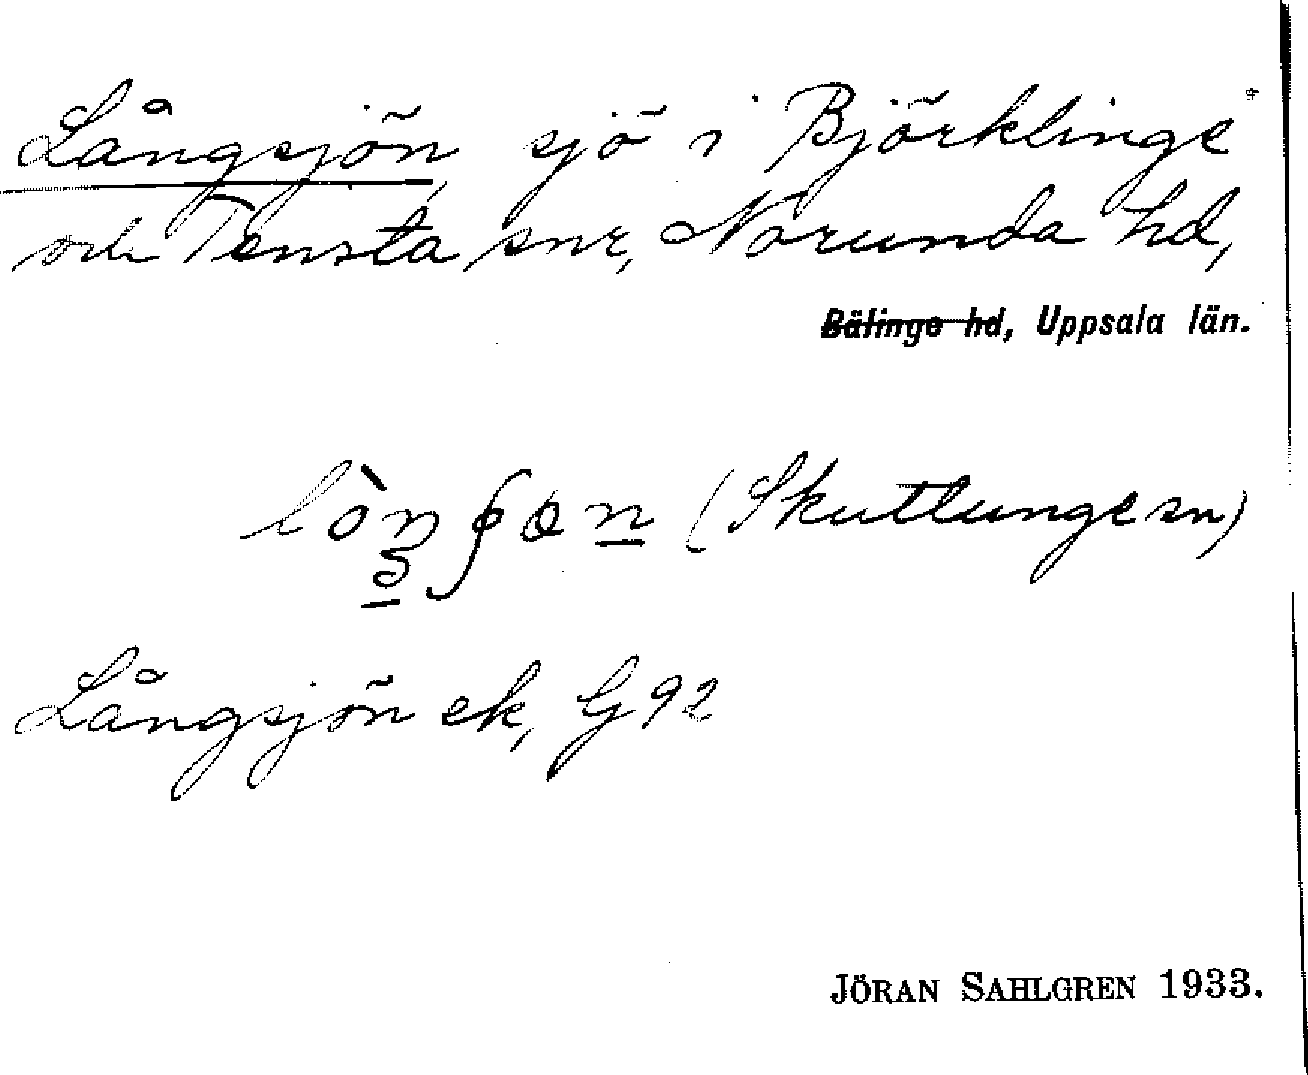 Långsjön, sjö i Björklinge
och Tensta snr, Norunda hd,
Bälinge hd, Uppsala län.
(Skuttunge sn)
Långsjön ek, G 92
JÖRAN SAHLGREN 1933.